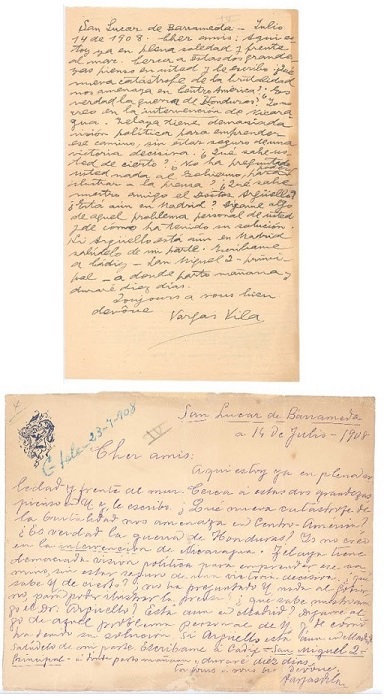 San Lucar de Barrameda - Julio
14 de 1908 - Cher amis: Aqui es-
toy ya en plena soledad y frente
al mar. Cerca a estas dos grande-
zas pienso en usted y le escribo. ¿Qué
nueva catástrofe de la brutalidad
nos amenaza en Centro América? ¿Es
verdad la guerra de Honduras? Yo no
creo en la intervención de Nicara-
gua. Zelaya tiene demasiada
visión política para emprender
ese camino, sin estar seguro de una
victoria decisiva. ¿Qué sabe us-
ted de cierto? ¿No ha preguntado
usted nada, al Gobierno, para
ilustrar a la prensa? ¿Qué sabe
nuestro amigo el Doctor Argüello?
¿Está aún en Madrid? Dígame algo
de aquel problema personal de usted
y de como ha tenido su solución.
Si Arguello está aún en Madrid
salúdelo de mi parte. Escríbame
a Cádiz - San Miguel 2 - princi-
pal - a donde parto mañana y
duraré diez días.
Toujours a vous bien
devoue
Vargas Vila
4
IV
23-7-908
San Lucar de Barrameda
a 14 de Julio - 1908
Cher amis:
Aqui estoy ya en plena so-
ledad y frente al mar. Cerca a estas dos grandezas
pienso en V y le escribo. ¿Que nueva catastrofe de
la brutalidad nos amenaza en Centro America?
¿Es verdad la guerra de Honduras? Yo no creo
en la intervencion de Nicaragua. Zelaya tiene
demasiada vision politica para emprender ese ca-
mino, sin estar seguro de una victoria decisiva. ¿que
sabe V de cierto? ¿no ha preguntado V nada al Gobier-
no, para poder ilustrar la prensa? ¿que sabe nuestro ami-
go el Dr. Arguello? Esta aun en Madrid? Digame al-
go de aquel problema personal de V y de como
ha tenido su solucion. Si Arguello esta aun en Madrid
Saludelo de mi parte Escribame a Cadiz - San Miguel 2-
Principal - a donde parto mañana y durare diez dias.
Toujours a vous bien devoue.
Vargas Vila